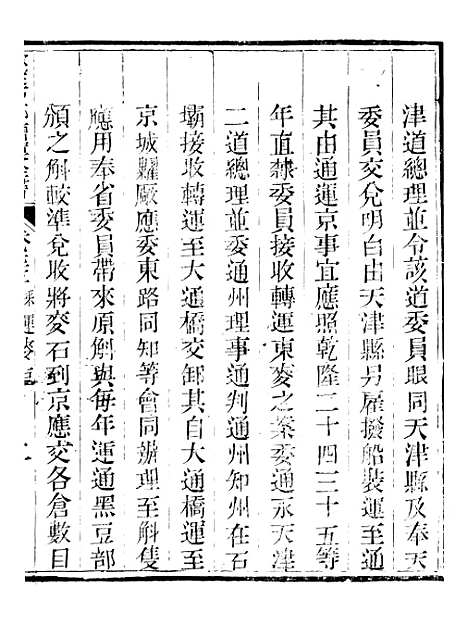 津道總理並令該道委員眼同天津縣及奉天
委員交兌明白由天津縣另雇撥船裝運至通
其由通運京事宜應照乾隆二十四三十五等
年直隸委員接收轉運東麥之案委通永天津
二道總理並委通州理事通判通州知州在石
壩接收轉運至大通橋交卸其自大通橋運至
京城糶厰應委東路同知等會同辦理至斛隻
應用奉省委員帶來原斛與每年運通黑豆部
頒之斛較準兌收將麥石到京應交各倉數目